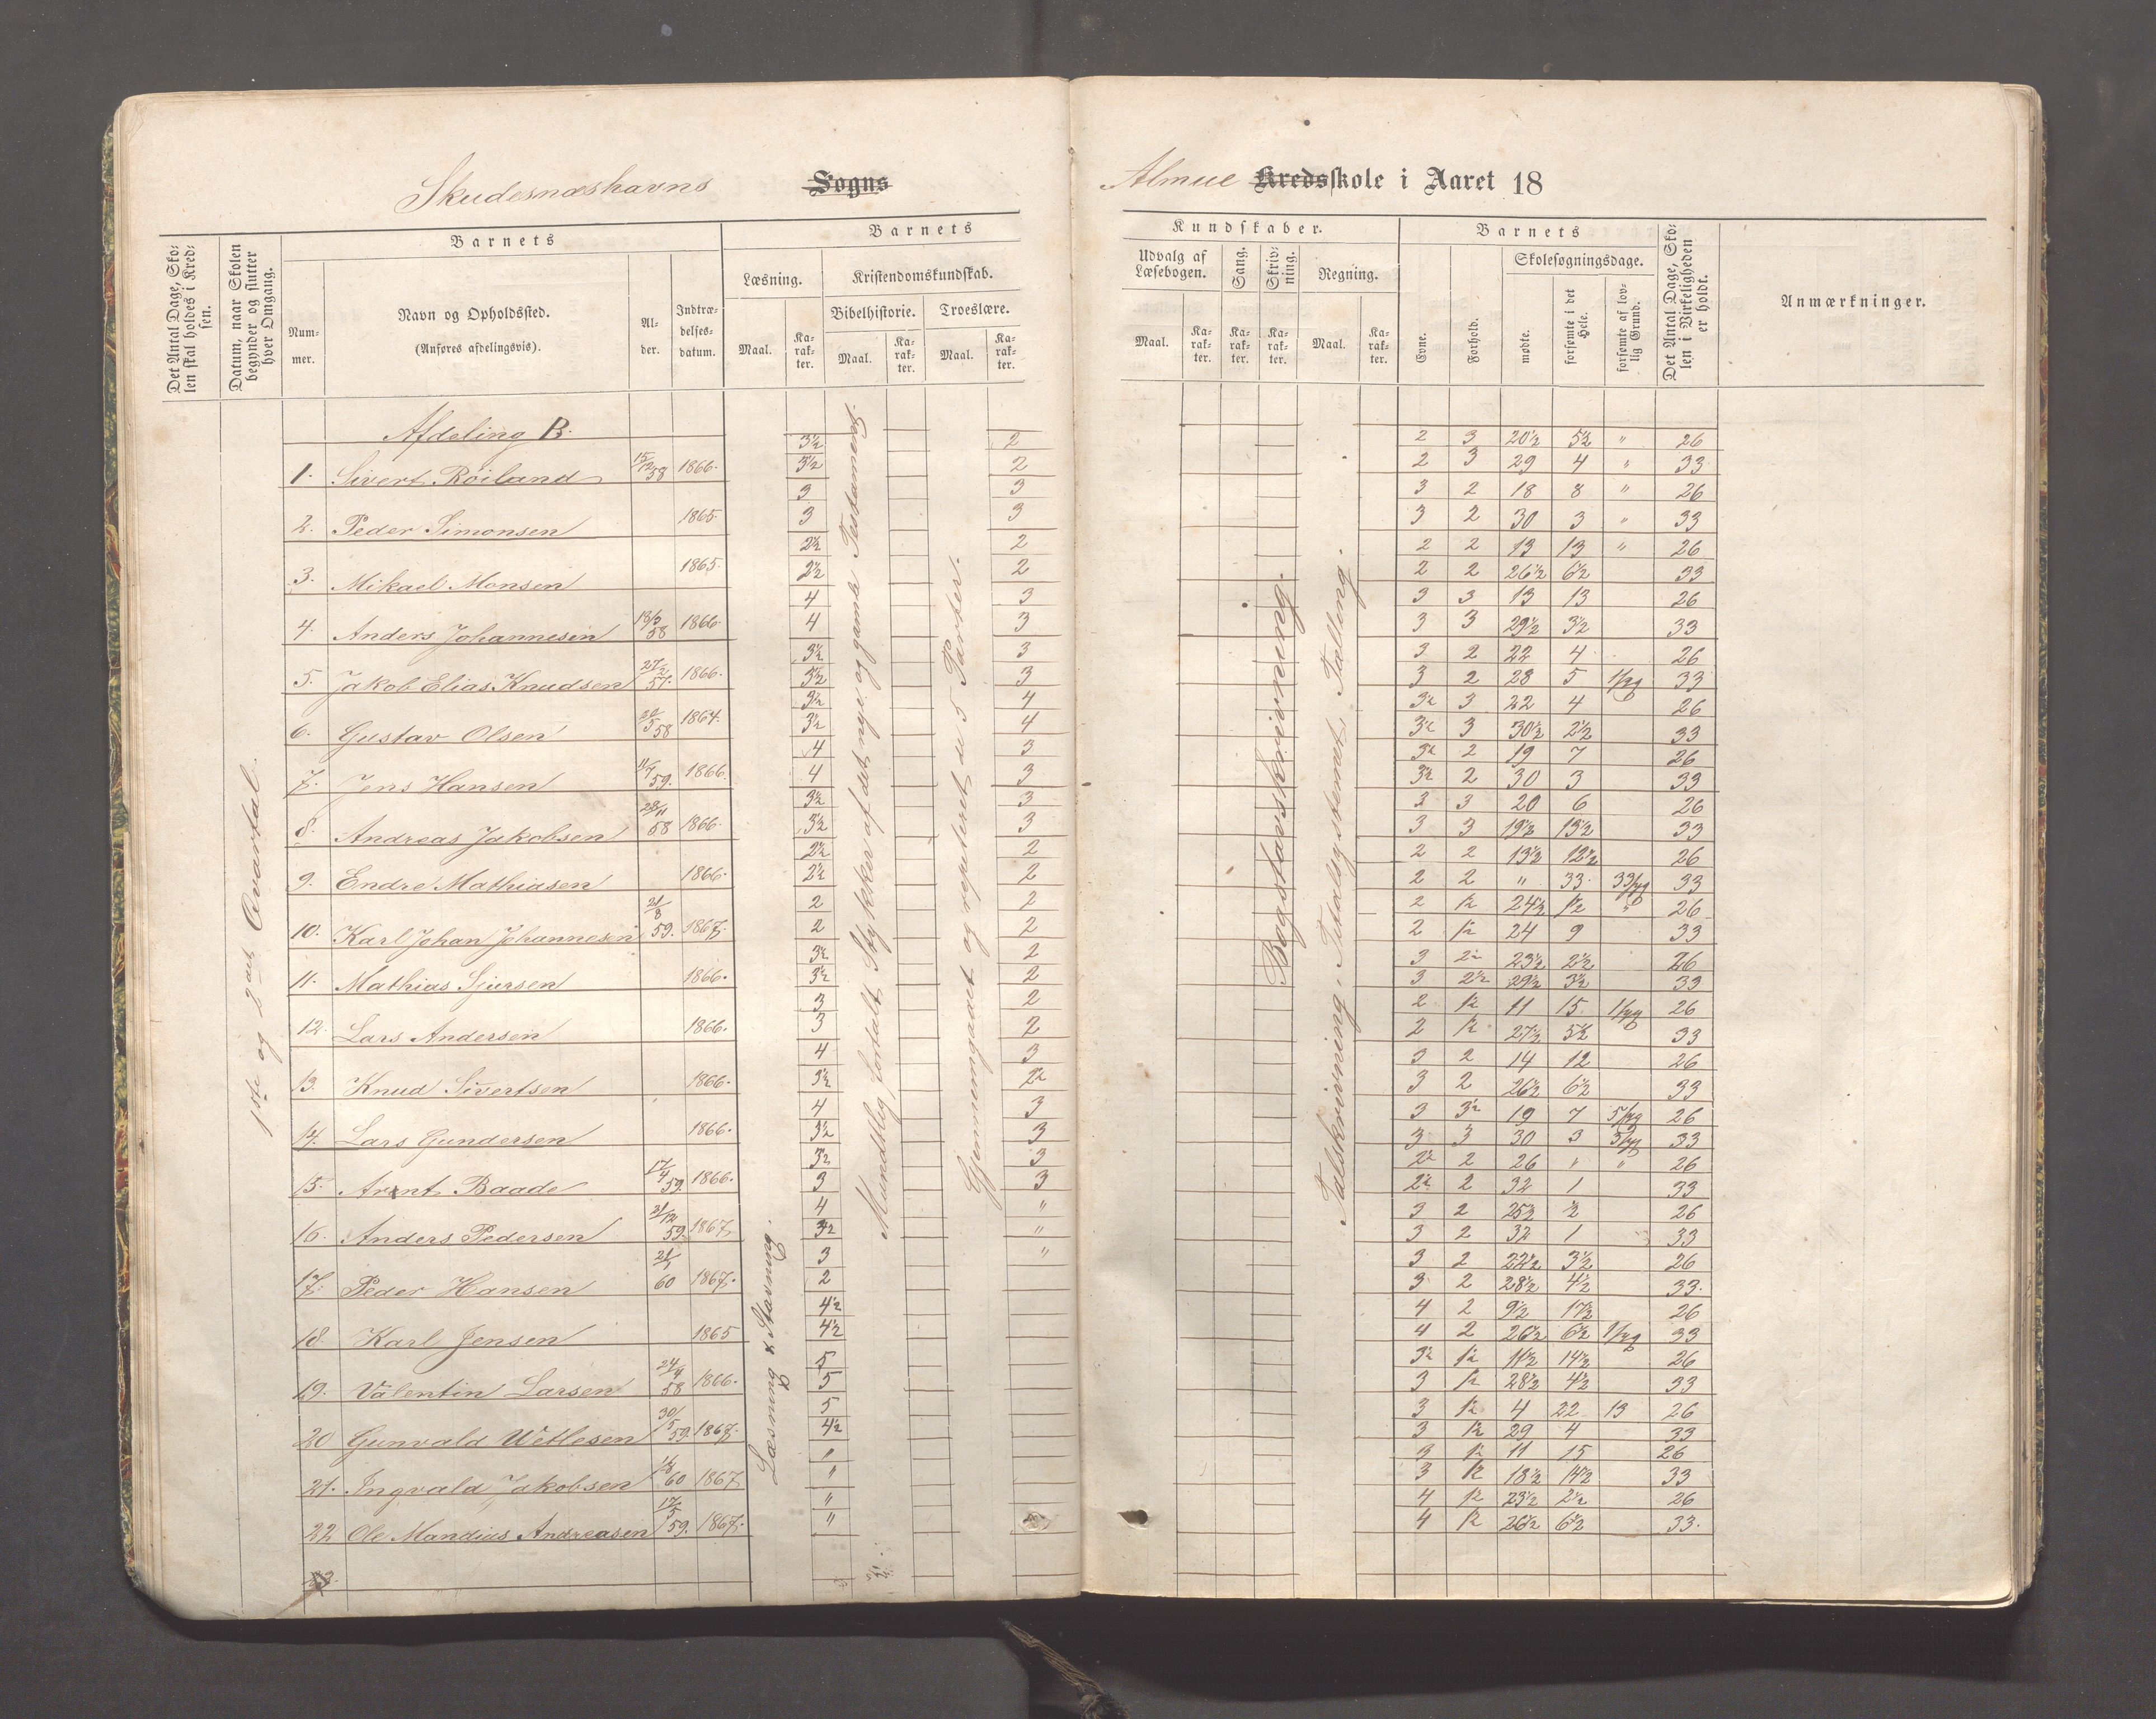 Skudesnæshavns Sogns
Almue Kredsskole i Aaret 18
Det Antal Dage, Skolen skal holdes i Kredsen.
Datum, naar Skolen begynder og slutter hver Omgang.
Barnets
Nummer.
Navn og Opholdssted.
(Anføres afdelingsvis).
Alder.
Indtrædelsesdatum.
Barnets
Læsning.
Maal.
Karakter.
Kristendomskundskab.
Bibelhistorie.
Maal.
Karakter.
Troeslære.
Maal.
Karakter.
Kundskaber.
Udvalg af Læsebogen.
Maal.
Karakter.
Sang.
Karakter.
Skrivning.
Karakter.
Regning.
Maal.
Karakter.
Barnets
Evne.
Forhold.
Skolesøgningsdage.
mødte.
forsømte i det Hele.
forsømte af lovlig Grund.
Det Antal Dage, Skolen i Virkeligheden er holdt.
Anmærkninger.
1ste og 2det Qvartal.
Læsning & Stavning.
Mundtlig fortalt Stykker af det nye og gamle Testament.
Gjennemgaaet og repeteret de 5 Parter.
Bogstavskrivning.
Talskrivning. Titalsystemet. Tælling.
Afdeling B.
1. Sivert Röiland 15/12 58 1866.
2. Peder Simonsen 1865.
3. Mikael Monsen 1865.
4. Anders Johannesen 58 1866.
5. Jakob Elias Knudsen 27/2 57. 1866.
6. Gustav Olsen 58 1864.
7. Jens Hansen 59. 1866.
8. Andreas Jakobsen 28/11 58 1866.
9. Endre Mathiasen 1866.
10. Karl Johan Johannesen 21/8 59. 1867.
11. Mathias Sjursen 1866.
12. Lars Andersen 1866.
13. Knud Sivertsen 1866.
14. Lars Gundersen 1866.
15. Arent Baade 17/4 59. 1866.
16. Anders Pedersen 21/12 59. 1867
17. Peder Hansen 21/1 60 1867.
18. Karl Jensen 1865
19. Valentin Larsen 24/4 58 1866.
20 Gunvald Wetlesen 30/5 59. 1867.
21. Ingvald Jakobsen 60 1867
22 Ole Mandius Andreasen 17/5 59. 1867.
23.
3½ 2 2 3 20½ 5½ " 26
3½ 2 2 3 29 4 " 33
3 3 3 2 18 8 " 26
3 3 3 2 30 3 " 33
2½ 2 2 2 13 13 " 26
2½ 2 2 2 26½ 6½ 33
4 3 3 3 13 13 26
4 3 3 3 29½ 3½ 33
3½ 3 3 2 22 4 26
3½ 3 3 2 28 5 33
3½ 4 3½ 3 22 4 26
3½ 4 3½ 3 30½ 2½ 33
4 3 3½ 2 19 7 26
4 3 3½ 2 30 3 33
3½ 3 3 3 20 6 26
3½ 3 3 3 19½ 13½ 33
2½ 2 2 2 13½ 12½ 26
2½ 2 2 2 " 33 33
2 2 2 1½ 24½ 1½ " 26
2 2 2 1½ 24 9 33
3½ 2 3 2½ 23½ 2½ 26
3½ 2 3 2½ 29½ 3½ 33
3 2 2 1½ 11 15 26
3 2 2 1½ 27½ 5½ 33
4 3 3 2 14 12 26
3½ 2½ 3 2 26½ 6½ 33
4 3 3 3½ 19 7 26
3½ 3 3 3 30 3 33
3½ 3 2½ 2 26 " " 26
3 3 2½ 2 32 1 33
4 " 3 2 25½ ½ 26
3½ " 3 2 32 1 33
3 " 3 2 22½ 3½ 26
2 3 2 28½ 4½ 33.
4½ 4 2 9½ 17½ 26
4½ 4 2 26½ 6½ 33
5 3½ 1½ 11½ 14½ 26
5 3 1½ 28½ 4½ 33
5 3 1½ 4 22 13 26
4½ 3 1½ 29 4 33
" 3 1½ 11 15 26
" 3 1½ 18½ 14½ 33
" 4 1½ 23½ 2½ 26
" 4 1½ 26½ 6½ 33.